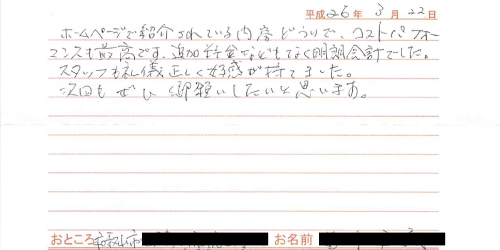 平成26年 3月 22日
ホームページで紹介されている内容どうりで、コストパフォー
マンスも最高です。追加料金などもなく明朗会計でした。
スタッフも礼儀正しく好感が持てました。
次回もぜひ御願いしたいと思います。
おところ
お名前